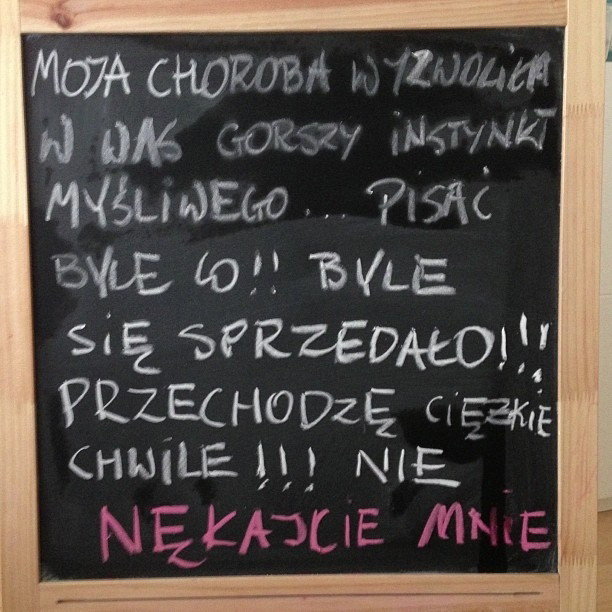 MOJA CHOROBA WYZWOLIŁA
W WAS GORSZY INSTYNKT
MYŚLIWEGO... PISAĆ
BYLE CO!! BYLE
SIĘ SPRZEDAŁO!!!
PRZECHODZĘ CIĘŻKIE
CHWILE!!! NIE
NĘKAJCIE MNIE